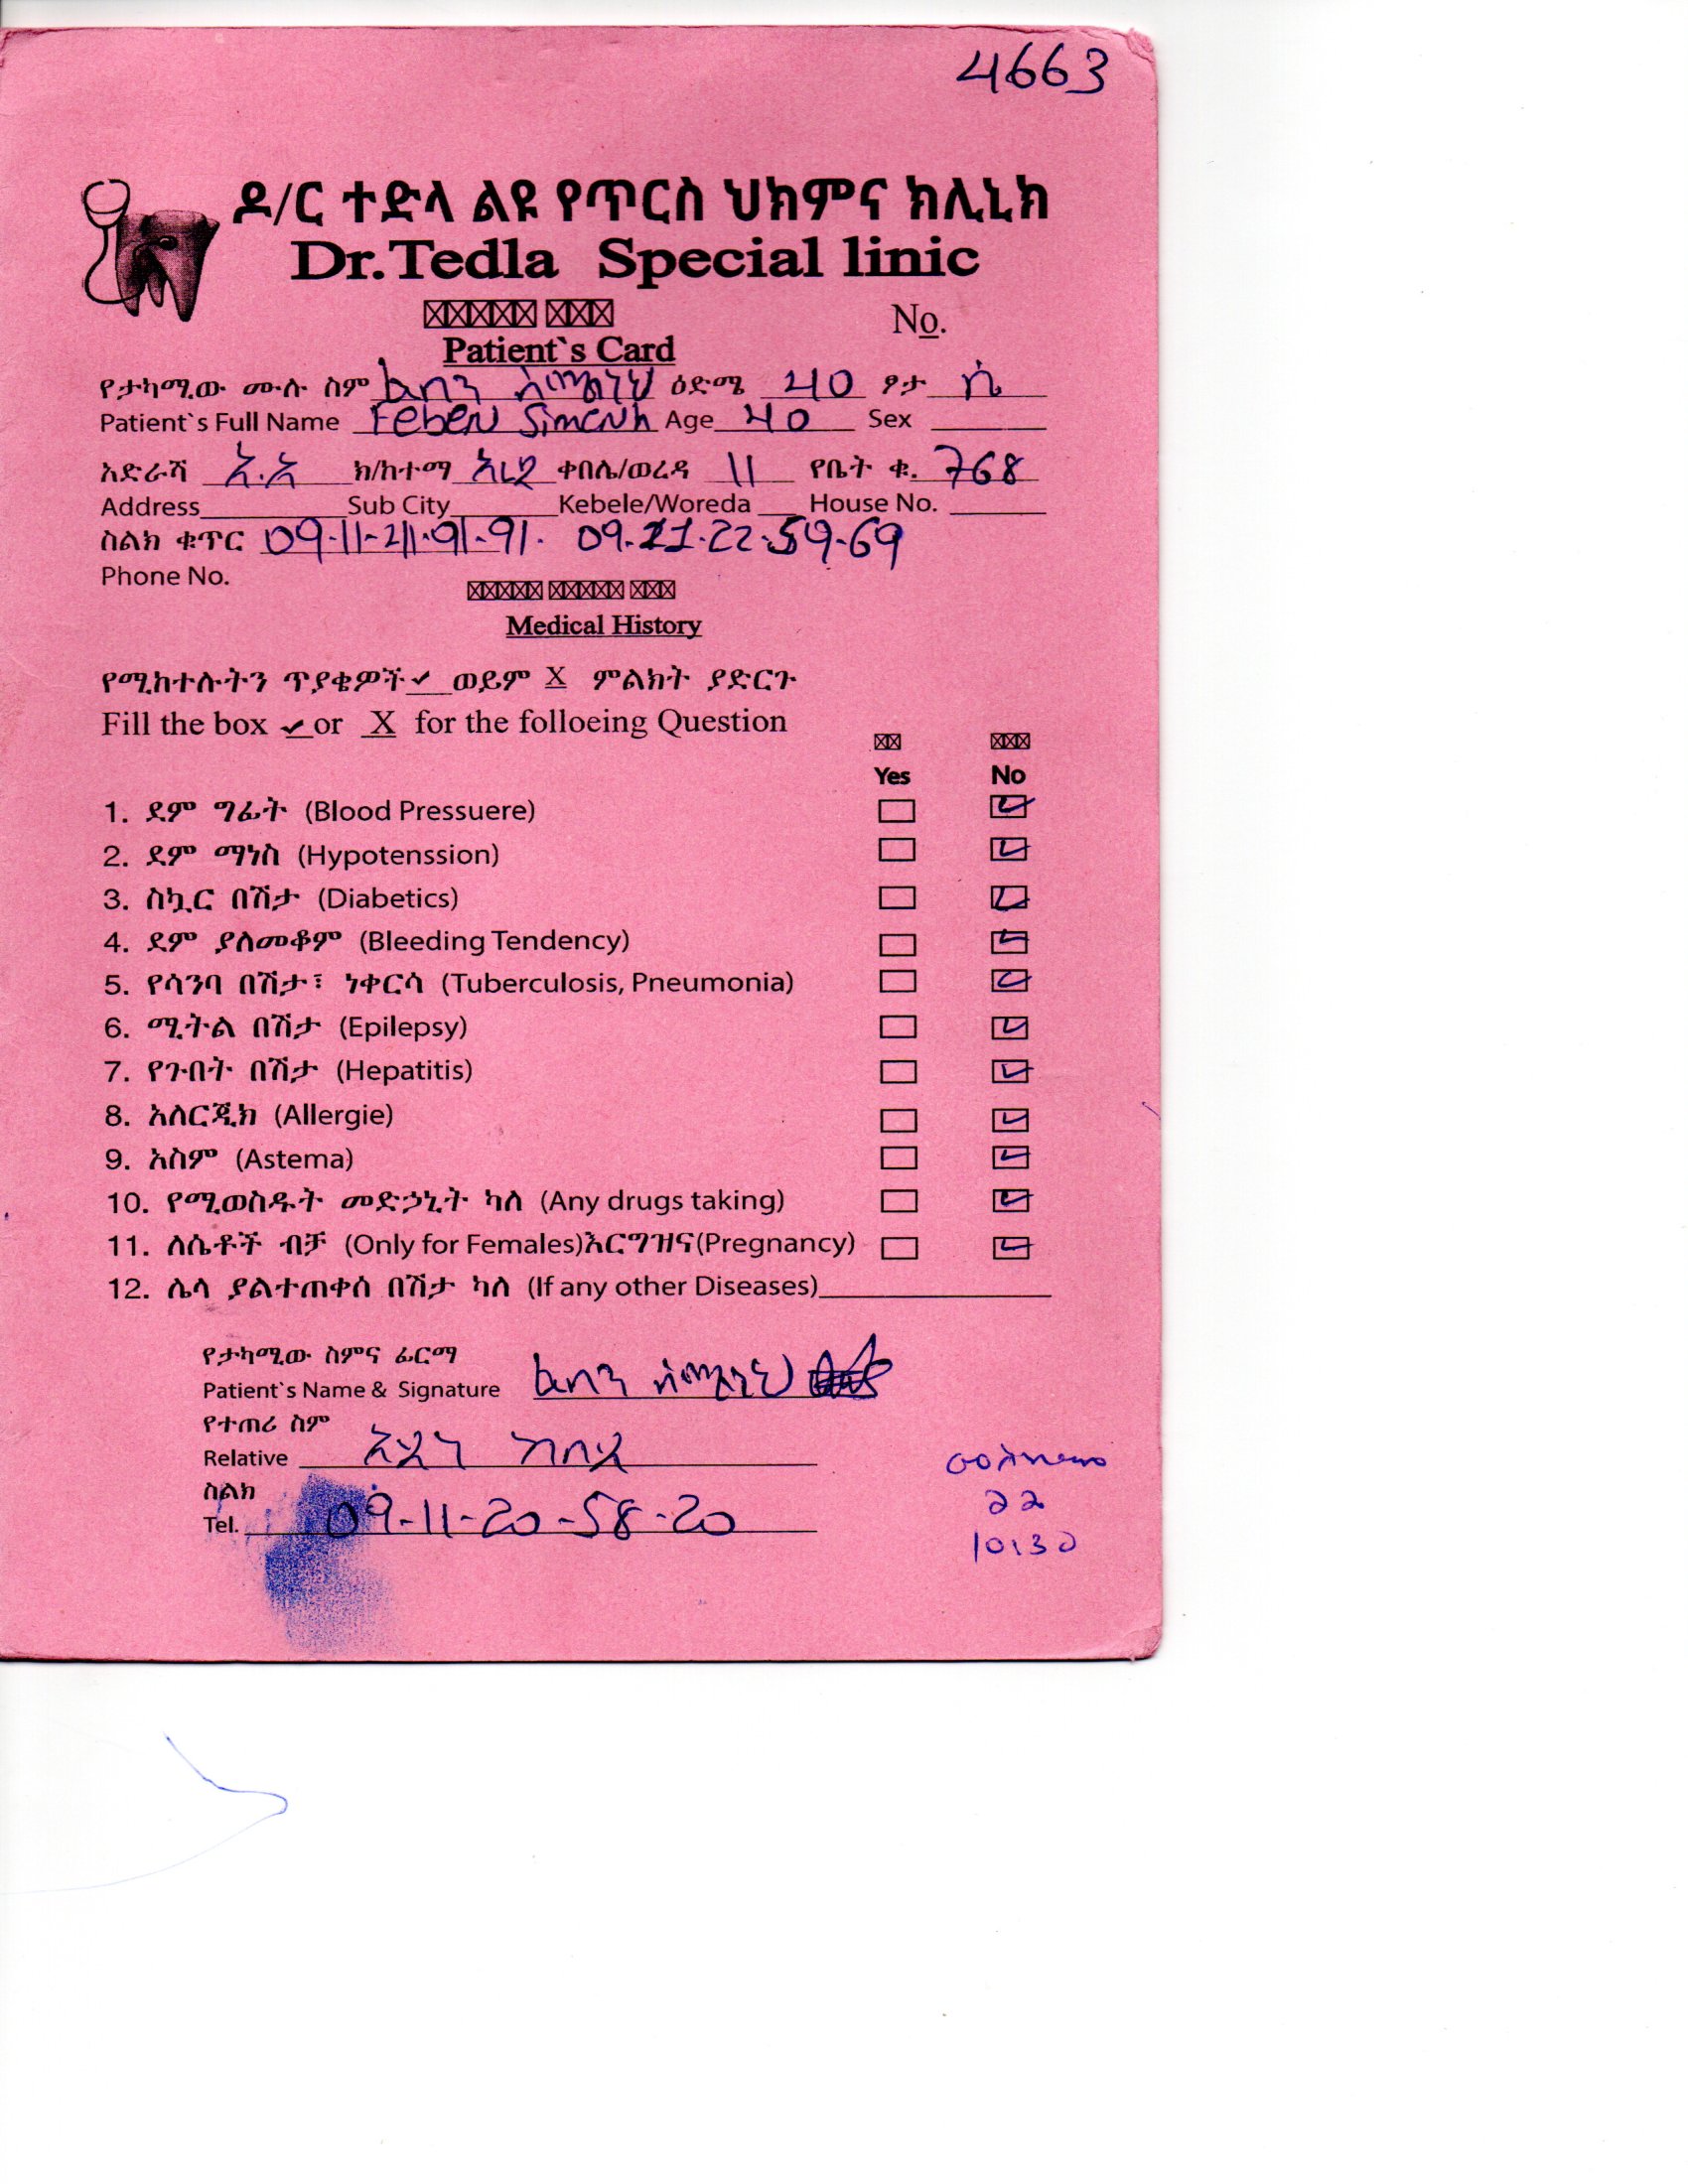 4663
ዶ/ር ተድላ ልዩ የጥርስ ህክምና ክሊኒክ
Dr.Tedla Special linic
No.
Patient`s Card
የታካሚው ሙሉ ስም ዕድሜ 40 ፆታ ሴ
Patient`s Full Name Feben Simenh Age 40 Sex
አድራሻ አ.አ ክ/ከተማ ቀበሌ/ወረዳ 11 የቤት ቁ. 768
Address Sub City Kebele/Woreda House No.
ስልክ ቁጥር 09-11-21-91-91. 09-21-22-59-69
Phone No.
Medical History
የሚከተሉትን ጥያቄዎች ✓ ወይም X ምልክት ያድርጉ
Fill the box ✓ or X for the folloeing Question
Yes No
1. ደም ግፊት (Blood Pressuere)
2. ደም ማነስ (Hypotenssion)
3. ስኳር በሽታ (Diabetics)
4. ደም ያለመቆም (Bleeding Tendency)
5. የሳንባ በሽታ፣ ነቀርሳ (Tuberculosis, Pneumonia)
6. ሚትል በሽታ (Epilepsy)
7. የጉበት በሽታ (Hepatitis)
8. አለርጂክ (Allergie)
9. አስም (Astema)
10. የሚወስዱት መድኃኒት ካለ (Any drugs taking)
11. ለሴቶች ብቻ (Only for Females)እርግዝና(Pregnancy)
12. ሌላ ያልተጠቀሰ በሽታ ካለ (If any other Diseases)
የታካሚው ስምና ፊርማ
Patient`s Name & Signature
የተጠሪ ስም
Relative
ስልክ
Tel. 09-11-20-58-20
22
10:30